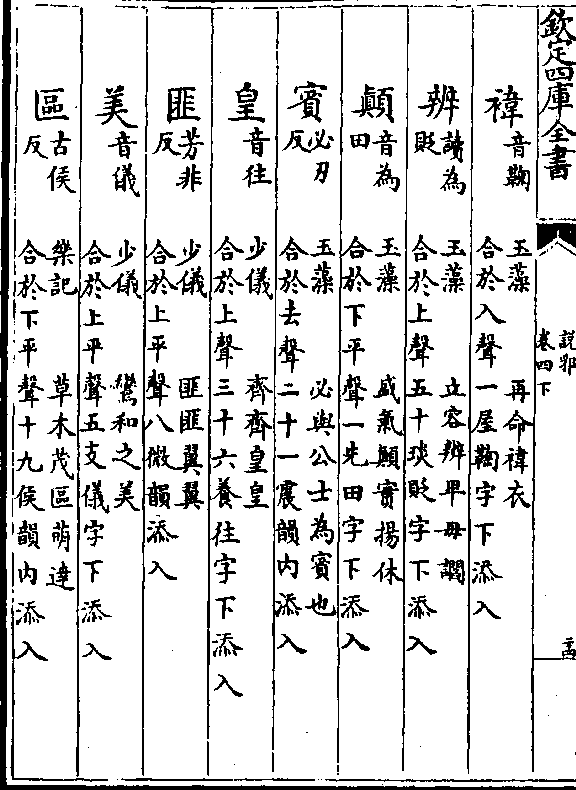 欽定四庫全書
說郛
卷四下
二十四
褘音鞠 玉藻 再命褘衣
合於入聲一屋鞠字下添入
辨讀為貶 玉藻 立容辨卑毋讇
合於上聲五十琰貶字下添入
顛音為田 玉藻 盛氣顛實揚休
合於下平聲一先田字下添入
賓必刃反 玉藻 必與公士為賓也
合於去聲二十一震韻內添入
皇音往 少儀 齊齊皇皇
合於上聲三十六養往字下添入
匪芳非反 少儀 匪匪翼翼
合於上平聲八微韻添入
美音儀 少儀 鸞和之美
合於上平聲五支儀字下添入
區古侯反 樂記 草木茂區萌達
合於下平聲十九侯韻內添入